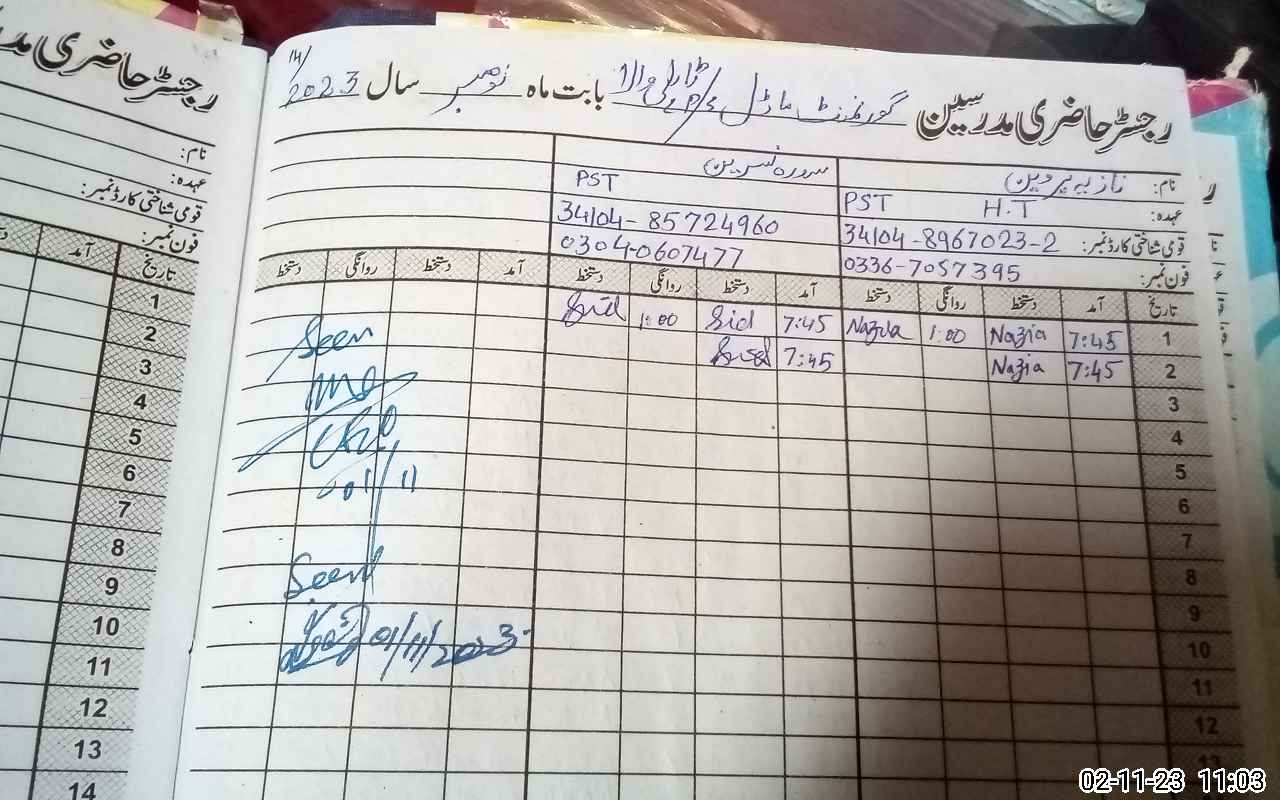 رجسٹر حاضری مدرسین گورنمنٹ ماڈل بابت ماہ نومبر سال 2023
14/
نام: نازیہ پروین
عہدہ: PST H.T PST
قومی شناختی کارڈ نمبر: 34104-8967023-2 34104-85724960
فون نمبر: 0336-7057395 0304-0607477
تاریخ آمد دستخط روانگی دستخط آمد دستخط روانگی دستخط آمد دستخط روانگی دستخط
1 7:45 Nazia 1:00 Nazia 7:45 Sid 1:00
2 7:45 Nazia 7:45
3
4
5
6
7
8
9
10
11
12
13
Seen
01/11
Seen
01/11/2023
رجسٹر حاضری
نام:
عہدہ:
قومی شناختی کارڈ نمبر:
فون نمبر:
تاریخ آمد
1
2
3
4
5
6
7
8
9
10
11
12
13
14
02-11-23 11:03